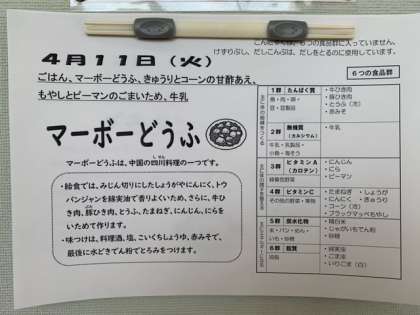 こんにゃくは、6つの食品群に入っていません。
けずりぶし、だしこんぶは、だしをとるのに使用しています。
4月11日（火）
ごはん、マーボーどうふ、きゅうりとコーンの甘酢あえ、
もやしとピーマンのごまいため、牛乳
マーボーどうふ
マーボーどうふは、中国の四川料理の一つです。
・給食では、みじん切りにしたしょうがやにんにく、トウ
バンジャンを綿実油で香りよくいため、さらに、牛ひ
き肉、豚ひき肉、とうふ、たまねぎ、にんじん、にらを
いためて作ります。
・味つけは、料理酒、塩、こいくちしょうゆ、赤みそで、
最後に水どきでん粉でとろみをつけます。
6つの食品群
1群 たんぱく質
魚・肉・卵・
豆・豆製品
・牛ひき肉
・豚ひき肉
・とうふ（大）
・赤みそ
2群 無機質
（カルシウム）
牛乳・乳製品・
小魚・海そう
・牛乳
3群 ビタミンA
（カロテン）
緑黄色野菜
・にんじん
・にら
・ピーマン
4群 ビタミンC
その他の野菜・果物
・たまねぎ ・しょうが
・にんにく ・きゅうり
・コーン（冷）
・ブラックマッペもやし
5群 炭水化物
米・パン・めん・
いも・砂糖
・精白米
・じゃがいもでん粉
・砂糖
6群 脂質
油脂
・綿実油
・ごま油
・いりごま（白）